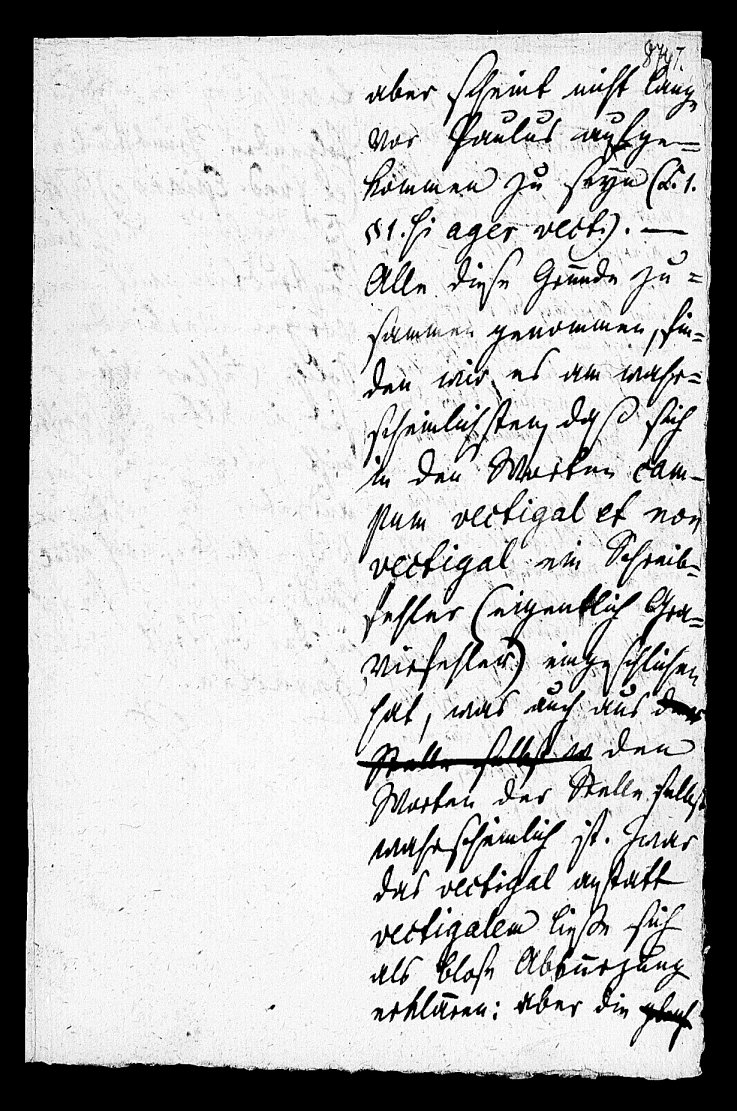 87
aber scheint nicht lange
vor Paulus aufge=
kommen zu seyn (L. 1.
§ 1. Si ager vect.). —
Alle diese Gründe zu=
sammen genommen, fin=
den wir es am wahr=
scheinlichsten, daß sich
in den Worten cam=
pum vectigal et non
vectigal ein Schreib=
fehler (eigentlich Gra=
virfehler) eingeschlichen
hat, was auch aus der
Stelle selbst w den
Worten der Stelle selbst
wahrscheinlich ist. Zwar
das vectigal anstatt
vectigalem ließe sich
als bloße Abkürzung
erklären: aber die